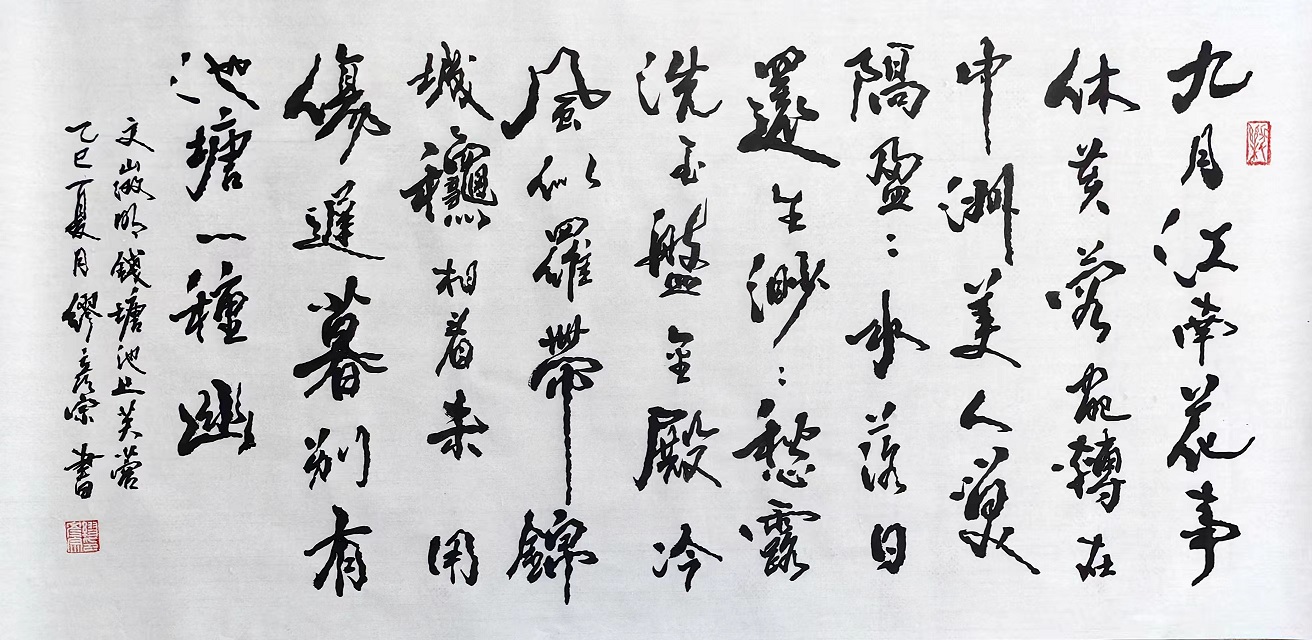 九月江南花事
休芙蓉宛轉在
中洲美人笑
隔盈:水落日
還生渺:愁露
洗玉盤金殿冷
風似羅帶錦
城龝相看未用
傷遲暮別有
池塘一種幽
文徵明錢塘池上芙蓉
乙巳夏月繆彥宗書